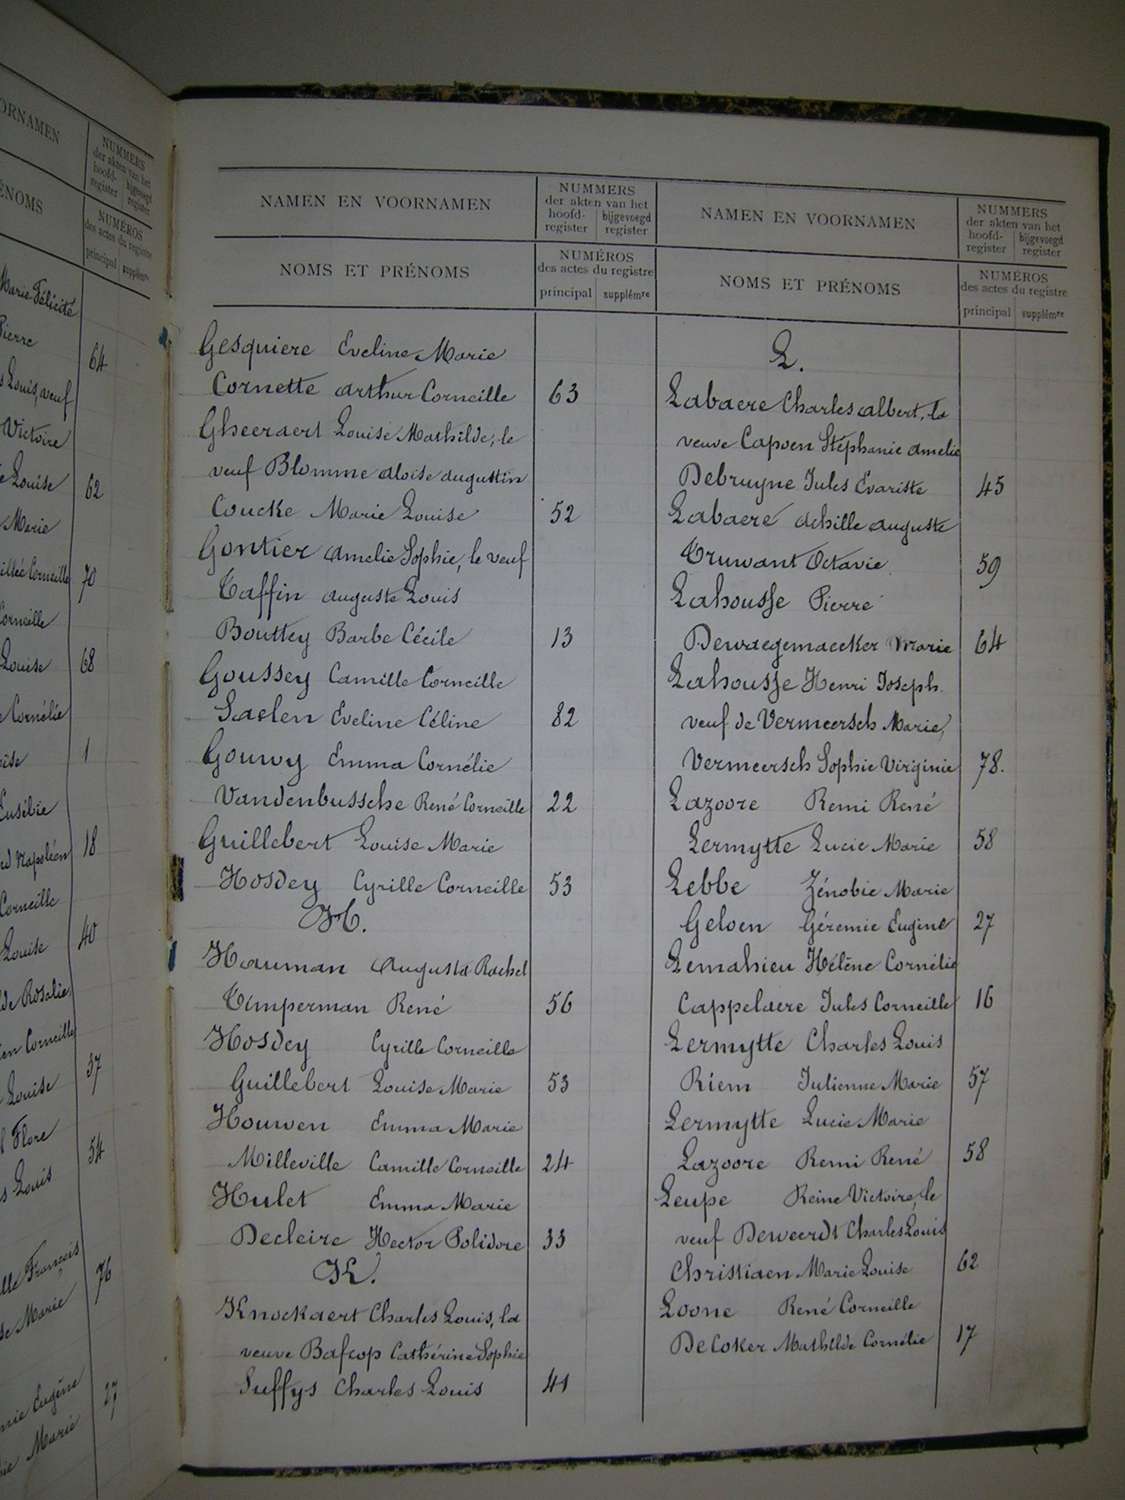 ORNAMEN
NUMMERS
der akten van het
hoofd- bijgevoegd
register register
ÉNOMS
NUMÉROS
des actes du registre
principal supplémre
Marie Félicité
Pierre 64
Louis, veuf
Victoire
Louise 62
Marie
Corneille 70
Corneille
Louise 68
Cornélie
1
Eusébie
Napoléon 18
Corneille
Louise 40
de Rosalie
Corneille
Louise 37
Flore
Louis 54
François
Marie 76
Eugène
Marie 27
NAMEN EN VOORNAMEN
NUMMERS
der akten van het
hoofd- bijgevoegd
register register
NOMS ET PRÉNOMS
NUMÉROS
des actes du registre
principal supplémre
Gesquiere Eveline Marie
Cornette Arthur Corneille 63
Gheeraert Louise Mathilde, le
veuf Blomme Aloïse Augustin
Coucke Marie Louise 52
Gontier Amelie Sophie, le veuf
Taffin Auguste Louis
Bouttey Barbe Cécile 13
Goussey Camille Corneille
Saelen Eveline Céline 82
Gouwy Emma Cornélie
Vandenbussche René Corneille 22
Guillebert Louise Marie
Hosdey Cyrille Corneille 53
H.
Hauman Augusta Rachel
Timperman René 56
Hosdey Cyrille Corneille
Guillebert Louise Marie 53
Houwen Emma Marie
Milleville Camille Corneille 24
Hulet Emma Marie
Decleire Hector Polidore 33
K.
Knockaert Charles Louis, la
veuve Bafcop Cathérine Sophie
Suffys Charles Louis 41
NAMEN EN VOORNAMEN
NUMMERS
der akten van het
hoofd- bijgevoegd
register register
NOMS ET PRÉNOMS
NUMÉROS
des actes du registre
principal supplémre
L.
Labaere Charles Albert, la
veuve Capoen Stéphanie Amelie
Debruyne Jules Evariste 45
Labaere Achille Auguste
Truwant Octavie 59
Lahousse Pierre
Dewaegemaecker Marie 64
Lahousse Henri Joseph
veuf de Vermeersch Marie,
Vermeersch Sophie Virginie 78.
Lazoore Remi René
Lermytte Lucie Marie 58
Lebbe Zénobie Marie
Geloen Géremie Eugène 27
Lemahieu Hélène Cornélie
Cappelaere Jules Corneille 16
Lermytte Charles Louis
Riem Julienne Marie 57
Lermytte Lucie Marie
Lazoore Remi René 58
Leupe Reine Victoire, le
veuf Deweerdt Charles Louis
Christiaen Marie Louise 62
Loone René Corneille
DeCoker Mathilde Cornélie 17